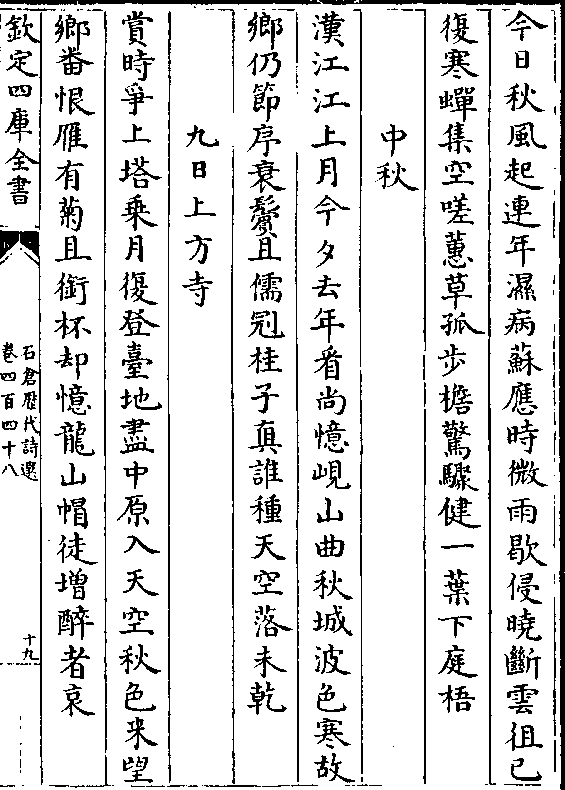 今日秋風起連年濕病蘇應時微雨歇侵曉斷雲徂已
復寒蟬集空嗟蕙草孤步檐驚驟健一葉下庭梧
中秋
漢江江上月今夕去年看尚憶峴山曲秋城波色寒故
鄉仍節序衰鬢且儒冠桂子真誰種天空落未乾
九日上方寺
賞時爭上塔乗月復登臺地盡中原入天空秋色来望
鄉畨恨雁有菊且銜杯却憶龍山帽徒增醉者哀
欽定四庫全書
石倉歴代詩選
卷四百四十八
十九